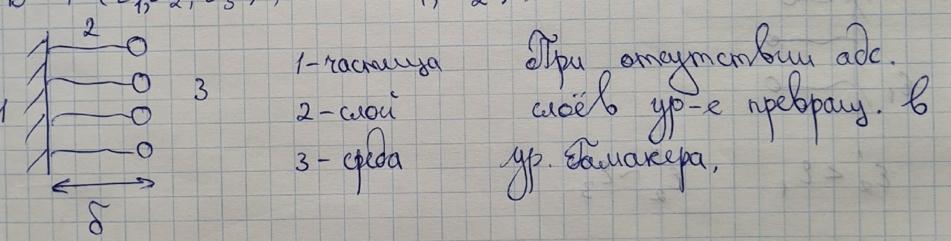 2
1 3
δ
1-частица
2-слой
3-среда
При отсутствии адс.
слоёв ур-е превращ. в
ур. Гамакера,